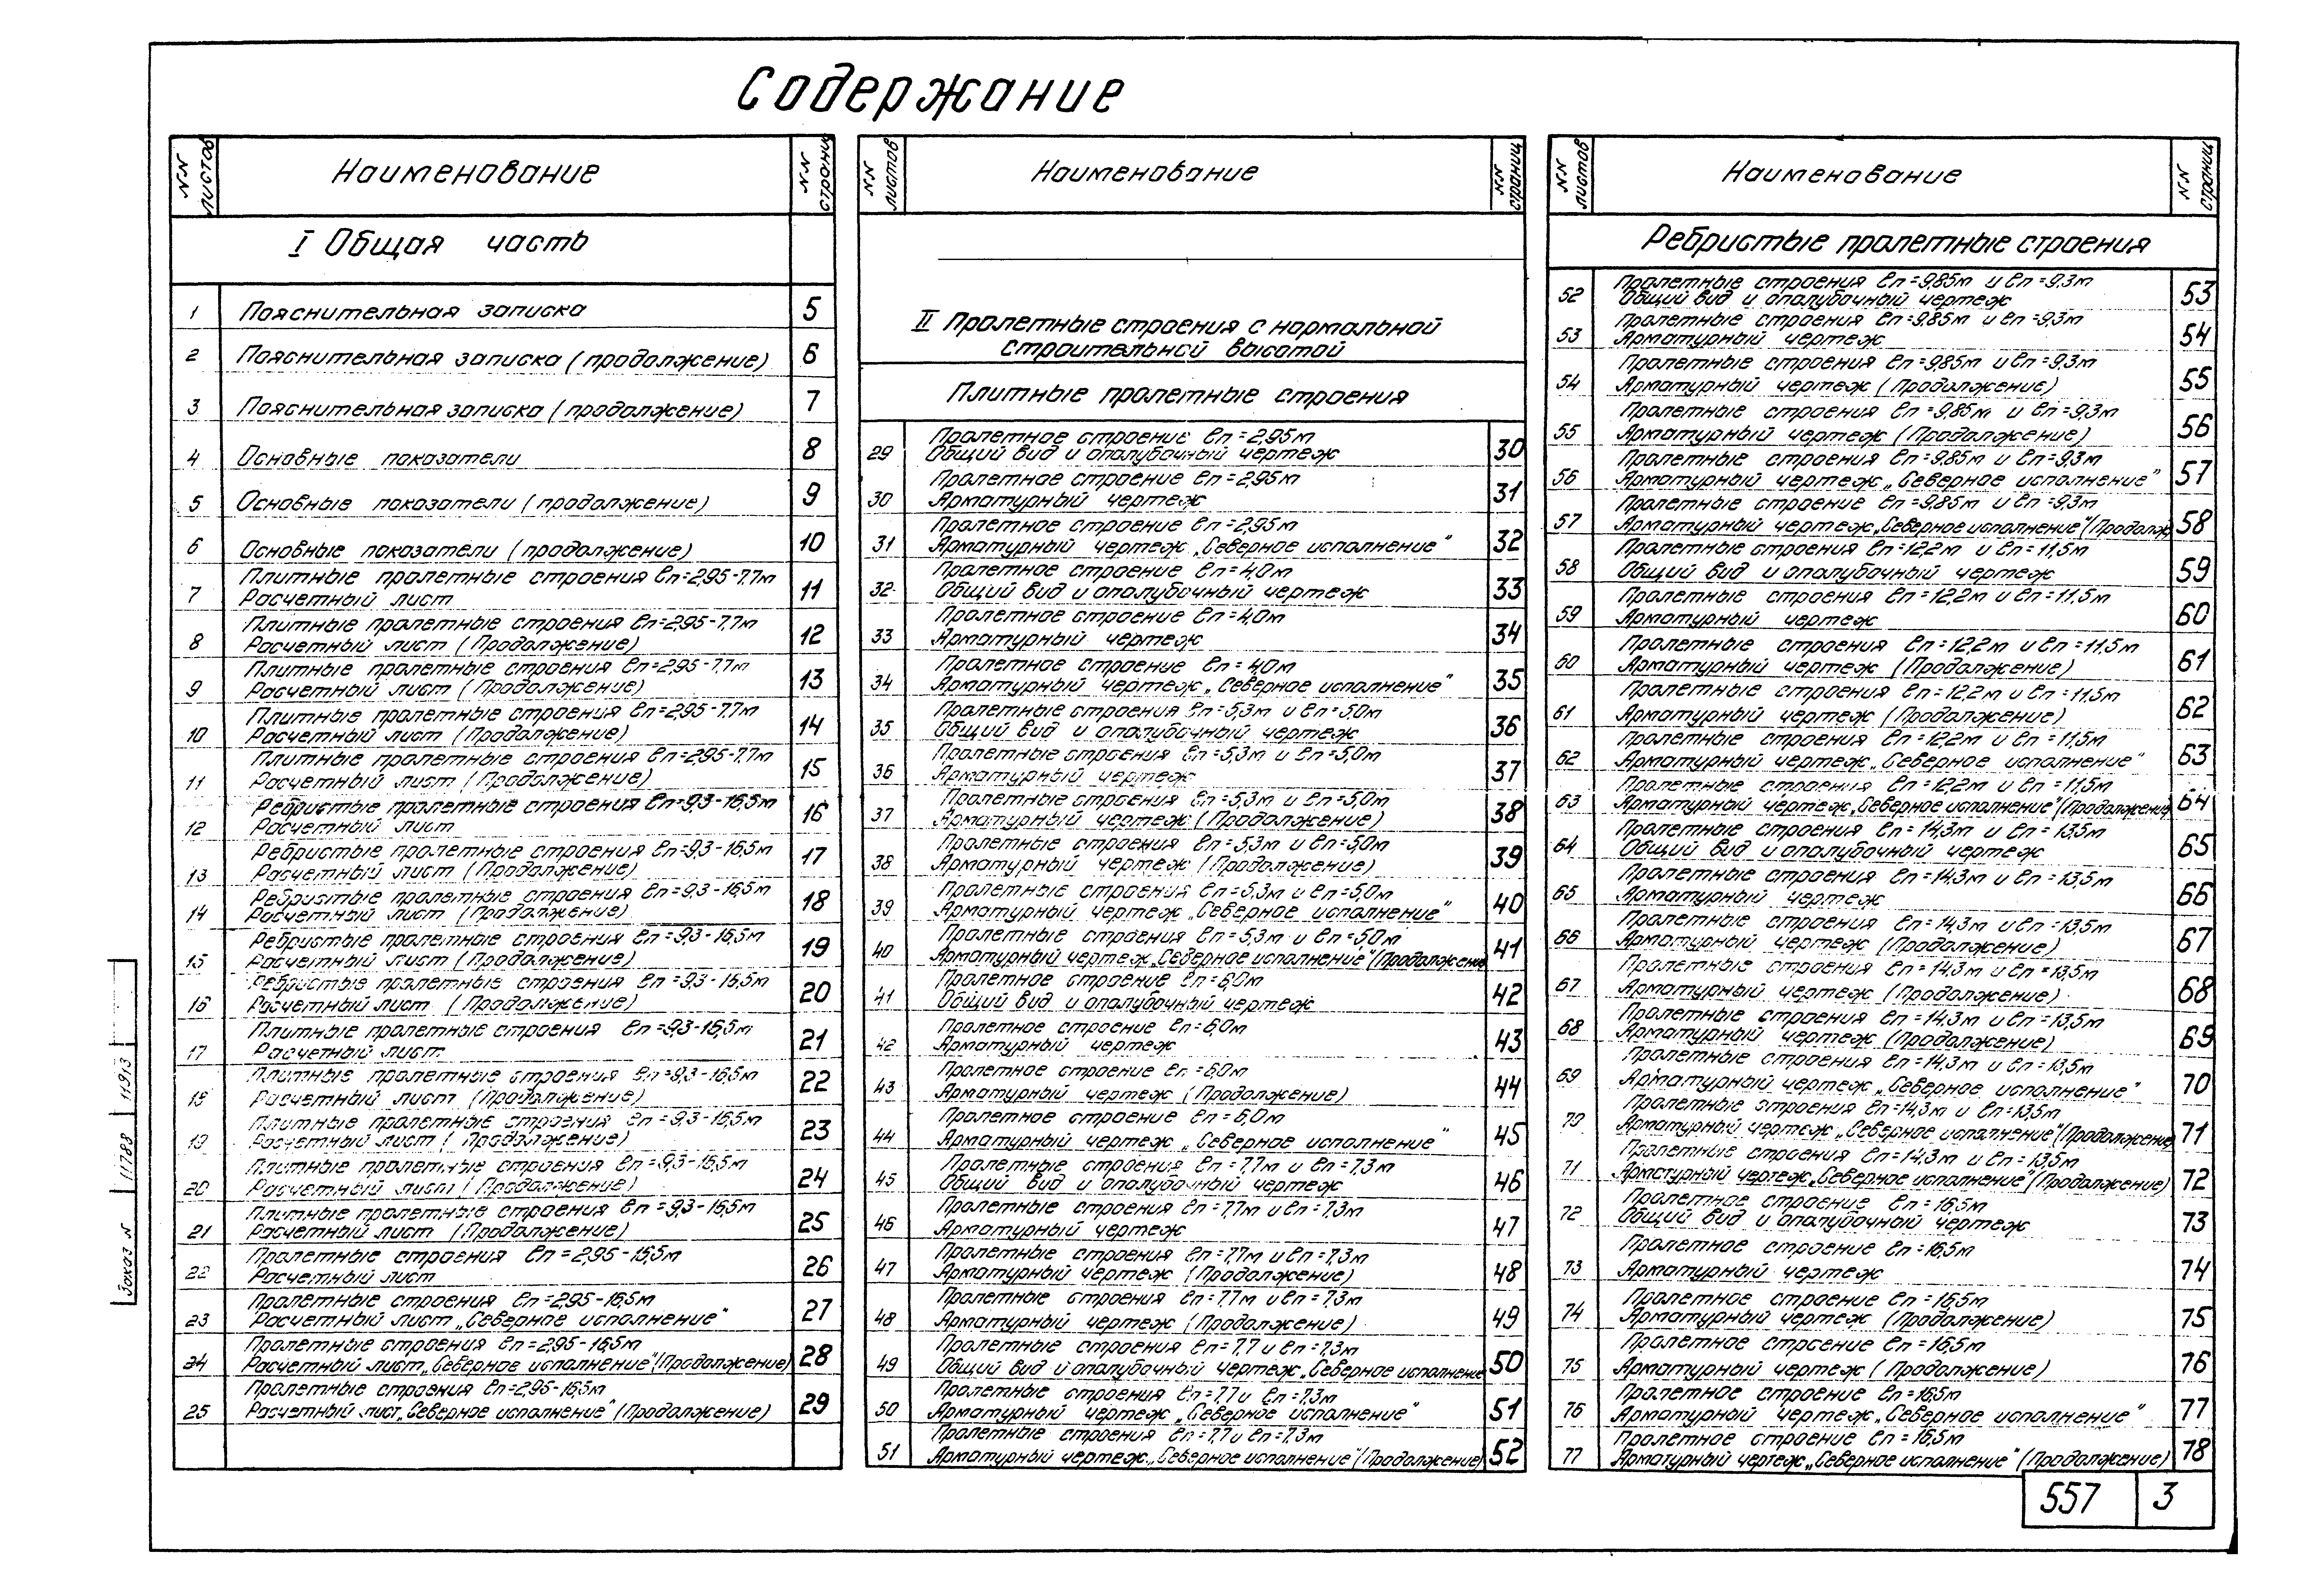 Содержание
NN листов Наименование NN страниц
I Общая часть
1 Пояснительная записка 5
2 Пояснительная записка (продолжение) 6
3 Пояснительная записка (продолжение) 7
4 Основные показатели 8
5 Основные показатели (продолжение) 9
6 Основные показатели (продолжение) 10
Плитные пролетные строения ℓп=2,95-7,7м
7 Расчетный лист 11
Плитные пролетные строения ℓп=2,95-7,7м
8 Расчетный лист (Продолжение) 12
Плитные пролетные строения ℓп=2,95-7,7м
9 Расчетный лист (Продолжение) 13
Плитные пролетные строения ℓп=2,95-7,7м
10 Расчетный лист (Продолжение) 14
Плитные пролетные строения ℓп=2,95-7,7м
11 Расчетный лист (Продолжение) 15
Ребристые пролетные строения ℓп=9,3-16,5м
12 Расчетный лист 16
Ребристые пролетные строения ℓп=9,3-16,5м
13 Расчетный лист (Продолжение) 17
Ребристые пролетные строения ℓп=9,3-16,5м
14 Расчетный лист (Продолжение) 18
Ребристые пролетные строения ℓп=9,3-16,5м
15 Расчетный лист (Продолжение) 19
Ребристые пролетные строения ℓп=9,3-16,5м
16 Расчетный лист (Продолжение) 20
Плитные пролетные строения ℓп=9,3-16,5м
17 Расчетный лист 21
Плитные пролетные строения ℓп=9,3-16,5м
18 Расчетный лист (Продолжение) 22
Плитные пролетные строения ℓп=9,3-16,5м
19 Расчетный лист (Продолжение) 23
Плитные пролетные строения ℓп=9,3-16,5м
20 Расчетный лист (Продолжение) 24
Плитные пролетные строения ℓп=9,3-16,5м
21 Расчетный лист (Продолжение) 25
Пролетные строения ℓп=2,95-16,5м
22 Расчетный лист 26
Пролетные строения ℓп=2,95-16,5м
23 Расчетный лист „Северное исполнение" 27
Пролетные строения ℓп=2,95-16,5м
24 Расчетный лист „Северное исполнение" (Продолжение) 28
Пролетные строения ℓп=2,95-16,5м
25 Расчетный лист „Северное исполнение" (Продолжение) 29
NN листов Наименование NN страниц
II Пролетные строения с нормальной
строительной высотой
Плитные пролетные строения
Пролетное строение ℓп=2,95м
29 Общий вид и опалубочный чертеж 30
Пролетное строение ℓп=2,95м
30 Арматурный чертеж 31
Пролетное строение ℓп=2,95м
31 Арматурный чертеж „Северное исполнение" 32
Пролетное строение ℓп=4,0м
32 Общий вид и опалубочный чертеж 33
Пролетное строение ℓп=4,0м
33 Арматурный чертеж 34
Пролетное строение ℓп=4,0м
34 Арматурный чертеж „Северное исполнение" 35
Пролетные строения ℓп=5,3м и ℓп=5,0м
35 Общий вид и опалубочный чертеж 36
Пролетные строения ℓп=5,3м и ℓп=5,0м
36 Арматурный чертеж 37
Пролетные строения ℓп=5,3м и ℓп=5,0м
37 Арматурный чертеж (Продолжение) 38
Пролетные строения ℓп=5,3м и ℓп=5,0м
38 Арматурный чертеж (Продолжение) 39
Пролетные строения ℓп=5,3м и ℓп=5,0м
39 Арматурный чертеж „Северное исполнение" 40
Пролетные строения ℓп=5,3м и ℓп=5,0м
40 Арматурный чертеж „Северное исполнение" (Продолжение 41
Пролетное строение ℓп=6,0м
41 Общий вид и опалубочный чертеж 42
Пролетное строение ℓп=6,0м
42 Арматурный чертеж 43
Пролетное строение ℓп=6,0м
43 Арматурный чертеж (Продолжение) 44
Пролетное строение ℓп=6,0м
44 Арматурный чертеж „Северное исполнение" 45
Пролетные строения ℓп=7,7м и ℓп=7,3м
45 Общий вид и опалубочный чертеж 46
Пролетные строения ℓп=7,7м и ℓп=7,3м
46 Арматурный чертеж 47
Пролетные строения ℓп=7,7м и ℓп=7,3м
47 Арматурный чертеж (Продолжение) 48
Пролетные строения ℓп=7,7м и ℓп=7,3м
48 Арматурный чертеж (Продолжение) 49
Пролетные строения ℓп=7,7 и ℓп=7,3м
49 Общий вид и опалубочный чертеж „Северное исполнение 50
Пролетные строения ℓп=7,7 и ℓп=7,3м
50 Арматурный чертеж „Северное исполнение" 51
Пролетные строения ℓп=7,7 и ℓп=7,3м
51 Арматурный чертеж „Северное исполнение" (Продолжение) 52
NN листов Наименование NN страниц
Ребристые пролетные строения
Пролетные строения ℓп=9,85м и ℓп=9,3м
52 Общий вид и опалубочный чертеж 53
Пролетные строения ℓп=9,85м и ℓп=9,3м
53 Арматурный чертеж 54
Пролетные строения ℓп=9,85м и ℓп=9,3м
54 Арматурный чертеж (Продолжение) 55
Пролетные строения ℓп=9,85м и ℓп=9,3м
55 Арматурный чертеж (Продолжение) 56
Пролетные строения ℓп=9,85м и ℓп=9,3м
56 Арматурный чертеж „Северное исполнение" 57
Пролетные строения ℓп=9,85м и ℓп=9,3м
57 Арматурный чертеж „Северное исполнение" (Продолж 58
Пролетные строения ℓп=12,2м и ℓп=11,5м
58 Общий вид и опалубочный чертеж 59
Пролетные строения ℓп=12,2м и ℓп=11,5м
59 Арматурный чертеж 60
Пролетные строения ℓп=12,2м и ℓп=11,5м
60 Арматурный чертеж (Продолжение) 61
Пролетные строения ℓп=12,2м и ℓп=11,5м
61 Арматурный чертеж (Продолжение) 62
Пролетные строения ℓп=12,2м и ℓп=11,5м
62 Арматурный чертеж „Северное исполнение" 63
Пролетные строения ℓп=12,2м и ℓп=11,5м
63 Арматурный чертеж „Северное исполнение" (Продолжение) 64
Пролетные строения ℓп=14,3м и ℓп=13,5м
64 Общий вид и опалубочный чертеж 65
Пролетные строения ℓп=14,3м и ℓп=13,5м
65 Арматурный чертеж 66
Пролетные строения ℓп=14,3м и ℓп=13,5м
66 Арматурный чертеж (Продолжение) 67
Пролетные строения ℓп=14,3м и ℓп=13,5м
67 Арматурный чертеж (Продолжение) 68
Пролетные строения ℓп=14,3м и ℓп=13,5м
68 Арматурный чертеж (Продолжение) 69
Пролетные строения ℓп=14,3м и ℓп=13,5м
69 Арматурный чертеж „Северное исполнение" 70
Пролетные строения ℓп=14,3м и ℓп=13,5м
70 Арматурный чертеж „Северное исполнение" (Продолжение 71
Пролетные строения ℓп=14,3м и ℓп=13,5м
71 Арматурный чертеж „Северное исполнение" (Продолжение) 72
Пролетное строение ℓп=16,5м
72 Общий вид и опалубочный чертеж 73
Пролетное строение ℓп=16,5м
73 Арматурный чертеж 74
Пролетное строение ℓп=16,5м
74 Арматурный чертеж (Продолжение) 75
Пролетное строение ℓп=16,5м
75 Арматурный чертеж (Продолжение) 76
Пролетное строение ℓп=16,5м
76 Арматурный чертеж „Северное исполнение" 77
Пролетное строение ℓп=16,5м
77 Арматурный чертеж „Северное исполнение" (Продолжение) 78
557 3
Заказ N 11788 11913